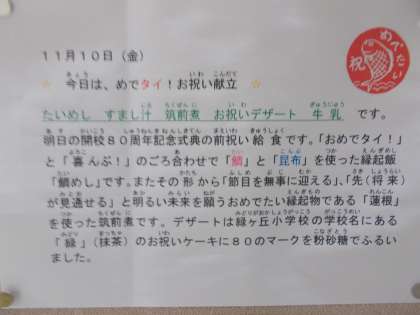 めでたい
祝
11月10日（金）
☆ 今日は、めでタイ！お祝い献立 ☆
たいめし すまし汁 筑前煮 お祝いデザート 牛乳 です。
明日の開校80周年記念式典の前祝い給食です。「おめでタイ！」
と「喜んぶ！」のごろ合わせで「鯛」と「昆布」を使った縁起飯
「鯛めし」です。またその形から「節目を無事に迎える」、「先（将来）
が見通せる」と明るい未来を願うおめでたい縁起物である「蓮根」
を使った筑前煮です。デザートは緑ヶ丘小学校の学校名にある
『緑』（抹茶）のお祝いケーキに80のマークを粉砂糖でふるい
ました。